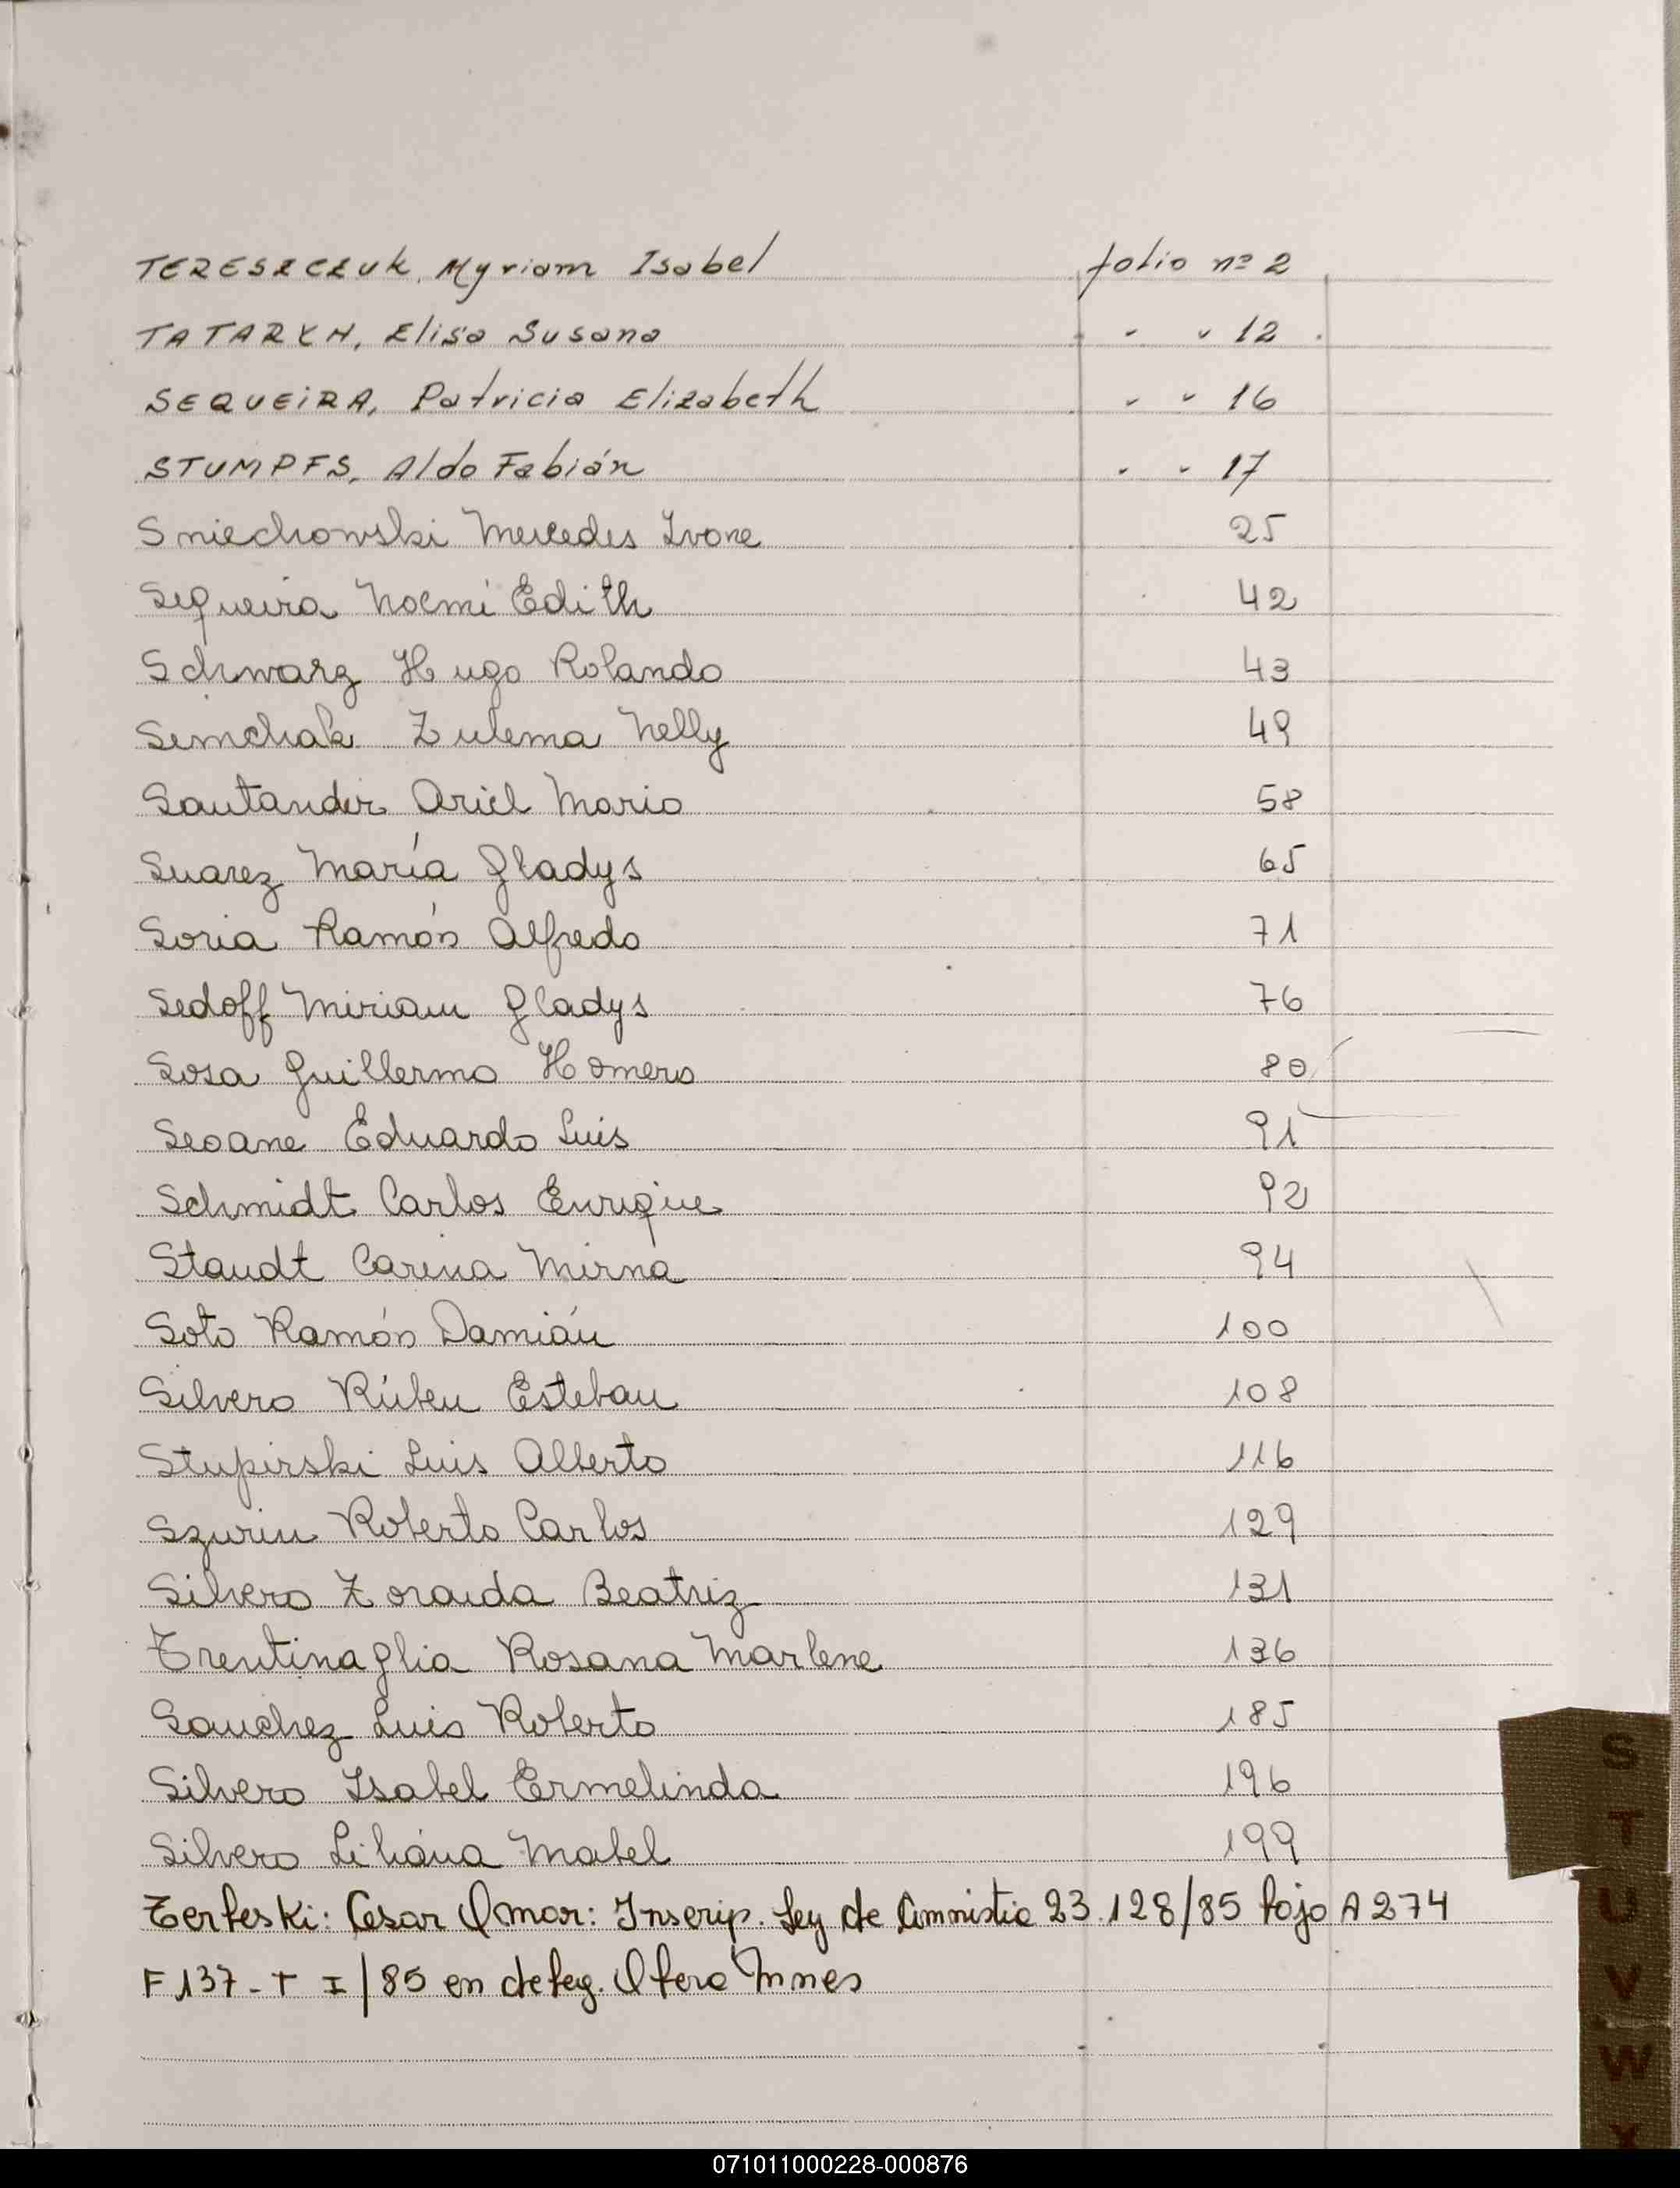 TERESZCZUK, Myriam Isabel folio nº 2
TATARYN, Elisa Susana " " 12
SEQUEIRA, Patricia Elizabeth " " 16
STUMPFS, Aldo Fabián " " 17
Sniechowski Mercedes Ivone 25
Sequeira Noemí Edith 42
Schwarz Hugo Rolando 43
Semchak Zulema Nelly 49
Santander Ariel Mario 58
Suarez María Gladys 65
Soria Ramón Alfredo 71
Sedoff Miriam Gladys 76
Sosa Guillermo Homero 80
Seoane Eduardo Luis 91
Schmidt Carlos Enrique 92
Staudt Carina Mirna 94
Soto Ramón Damián 100
Silvero Rúben Esteban 108
Stupirski Luis Alberto 116
Szurin Roberto Carlos 129
Silvero Zoraida Beatriz 131
Trentinaglia Rosana Marlene 136
Sanchez Luis Roberto 185
Silvero Isabel Ermelinda 196
Silvero Liliana Mabel 199
Terleski: Cesar Omar: Inscrip. Ley de Amnistia 23.128/85 bajo A 274
F 137 - T I/85 en deleg. Obera Mnes
S
T
U
V
W
X
071011000228-000876